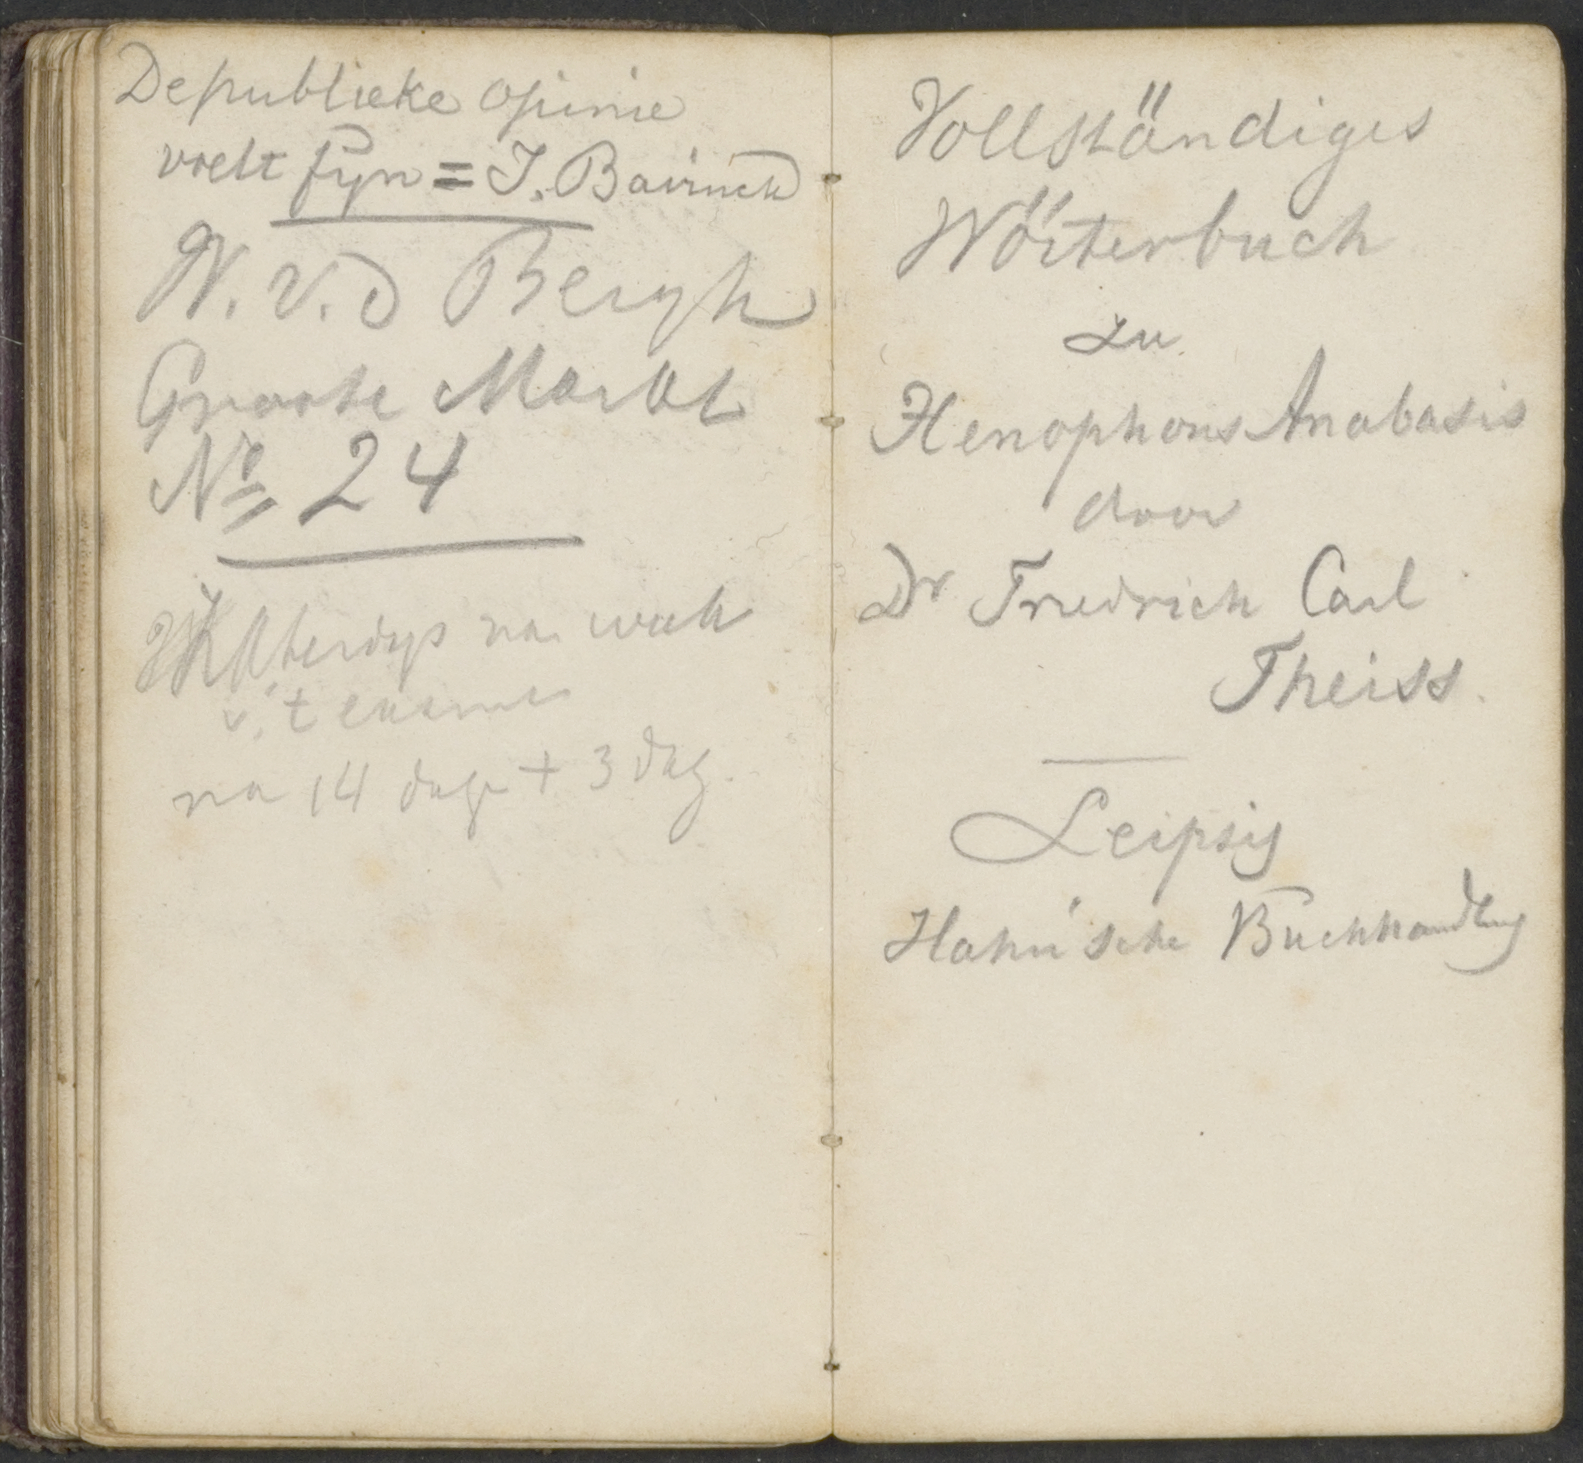 De publieke opinie
voelt fyn = J. Bavinck
N. v. d Bergh
Groote Markt
No 24
na
v. 't examen
na 14 dage + 3 dag.
Vollständiges
Wörterbuch
zu
Xenophons Anabasis
door
Dr Friedrich Carl
Theiss.
Leipsig
Hahn'sche Buchhandlung